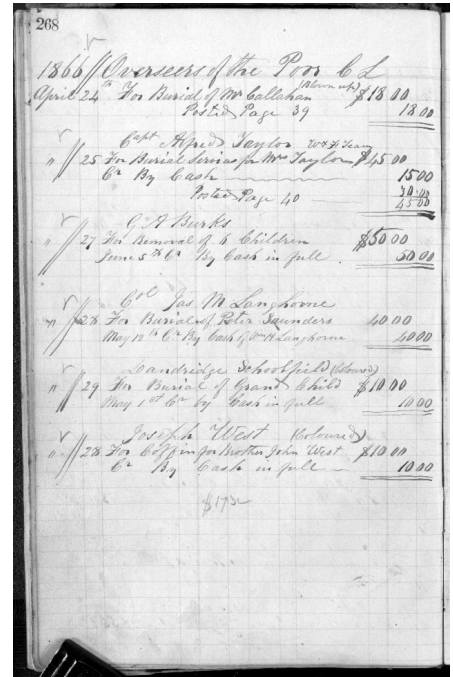 268
1866 // Overseers of the Poor C L
April 24th For Burial of Mr Callahan (Blown up) $18 00
Posted Page 39 18 00
Capt Alfred Taylor W & Team
" // 25 For Burial Servises for Mrs Taylor $45 00
Cr By Cash 15 00
30.00
Posted Page 40 45 00
G A Burks
" // 27 For Removal of 6 Children $50 00
June 5th Cr By Cash in full 50 00
Col Jas M Langhorne
" // 28 For Burial of Peter Saunders 40 00
May 18th Cr By Cash of Langhorne 40 00
Dandridge Schoolfield (Coloured)
" // 29 For Burial of Grand Child $10 00
May 1st Cr by Cash in full 10 00
Joseph West (Coloured)
" // 28 For Coffin for Brother John West $10 00
Cr By Cash in full 10 00
$173